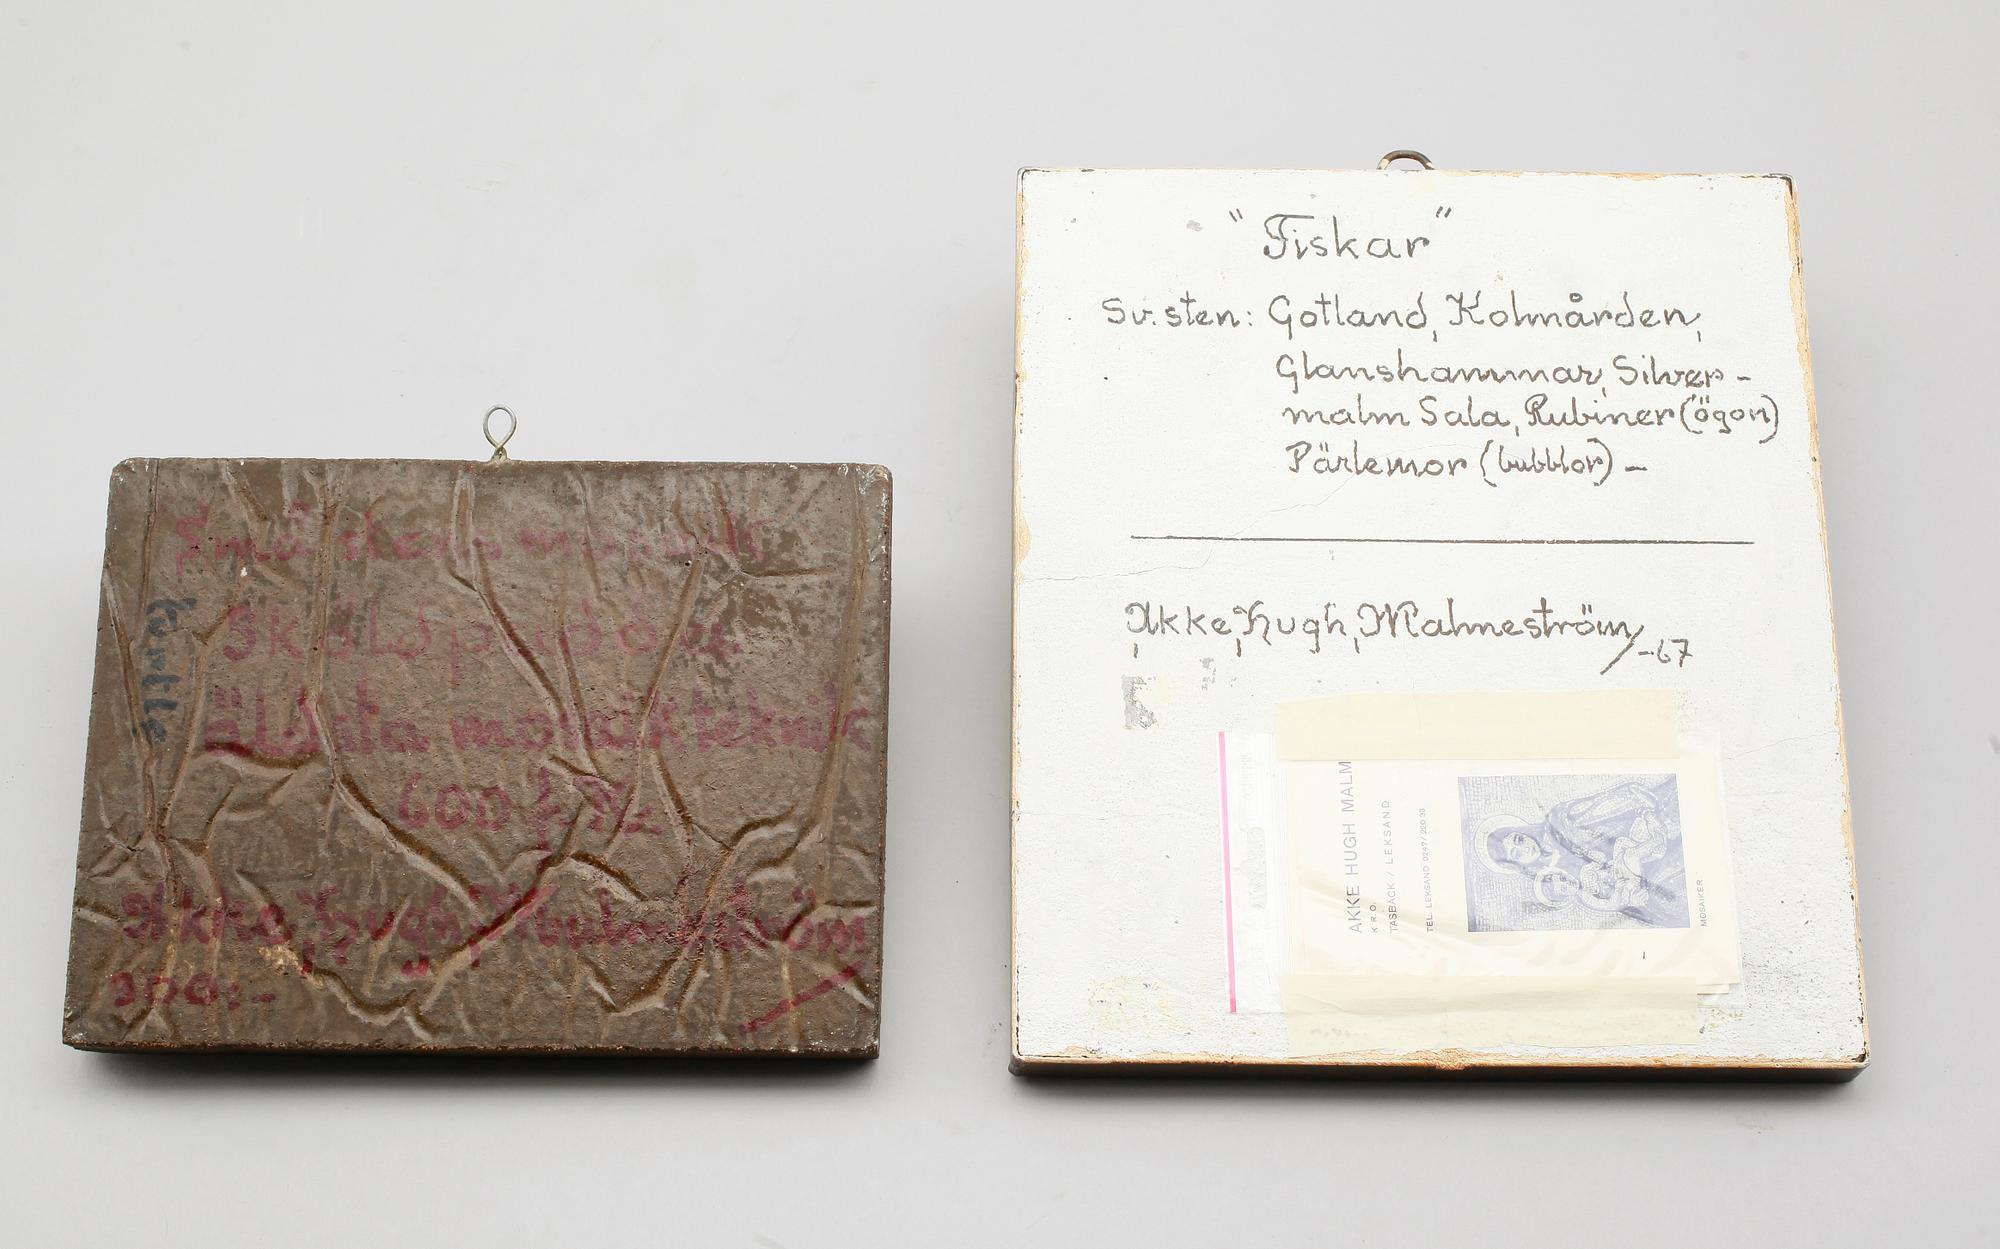 Småstens mosaik
Sköldpaddor
äldsta mosaikteknik
600 f. Kr.
Akke, Hugh, Malmeström
300:-
turtle
"Fiskar"
Sv. sten: Gotland, Kolmården,
Glanshammar, Silver-
malm Sala, Rubiner (ögon)
Pärlemor (bubblor) -
Akke, Hugh, Malmeström/-67
AKKE HUGH MALM
K.R.O.
TASBÄCK / LEKSAND
TEL. LEKSAND 0247/220 33
MOSAIKER